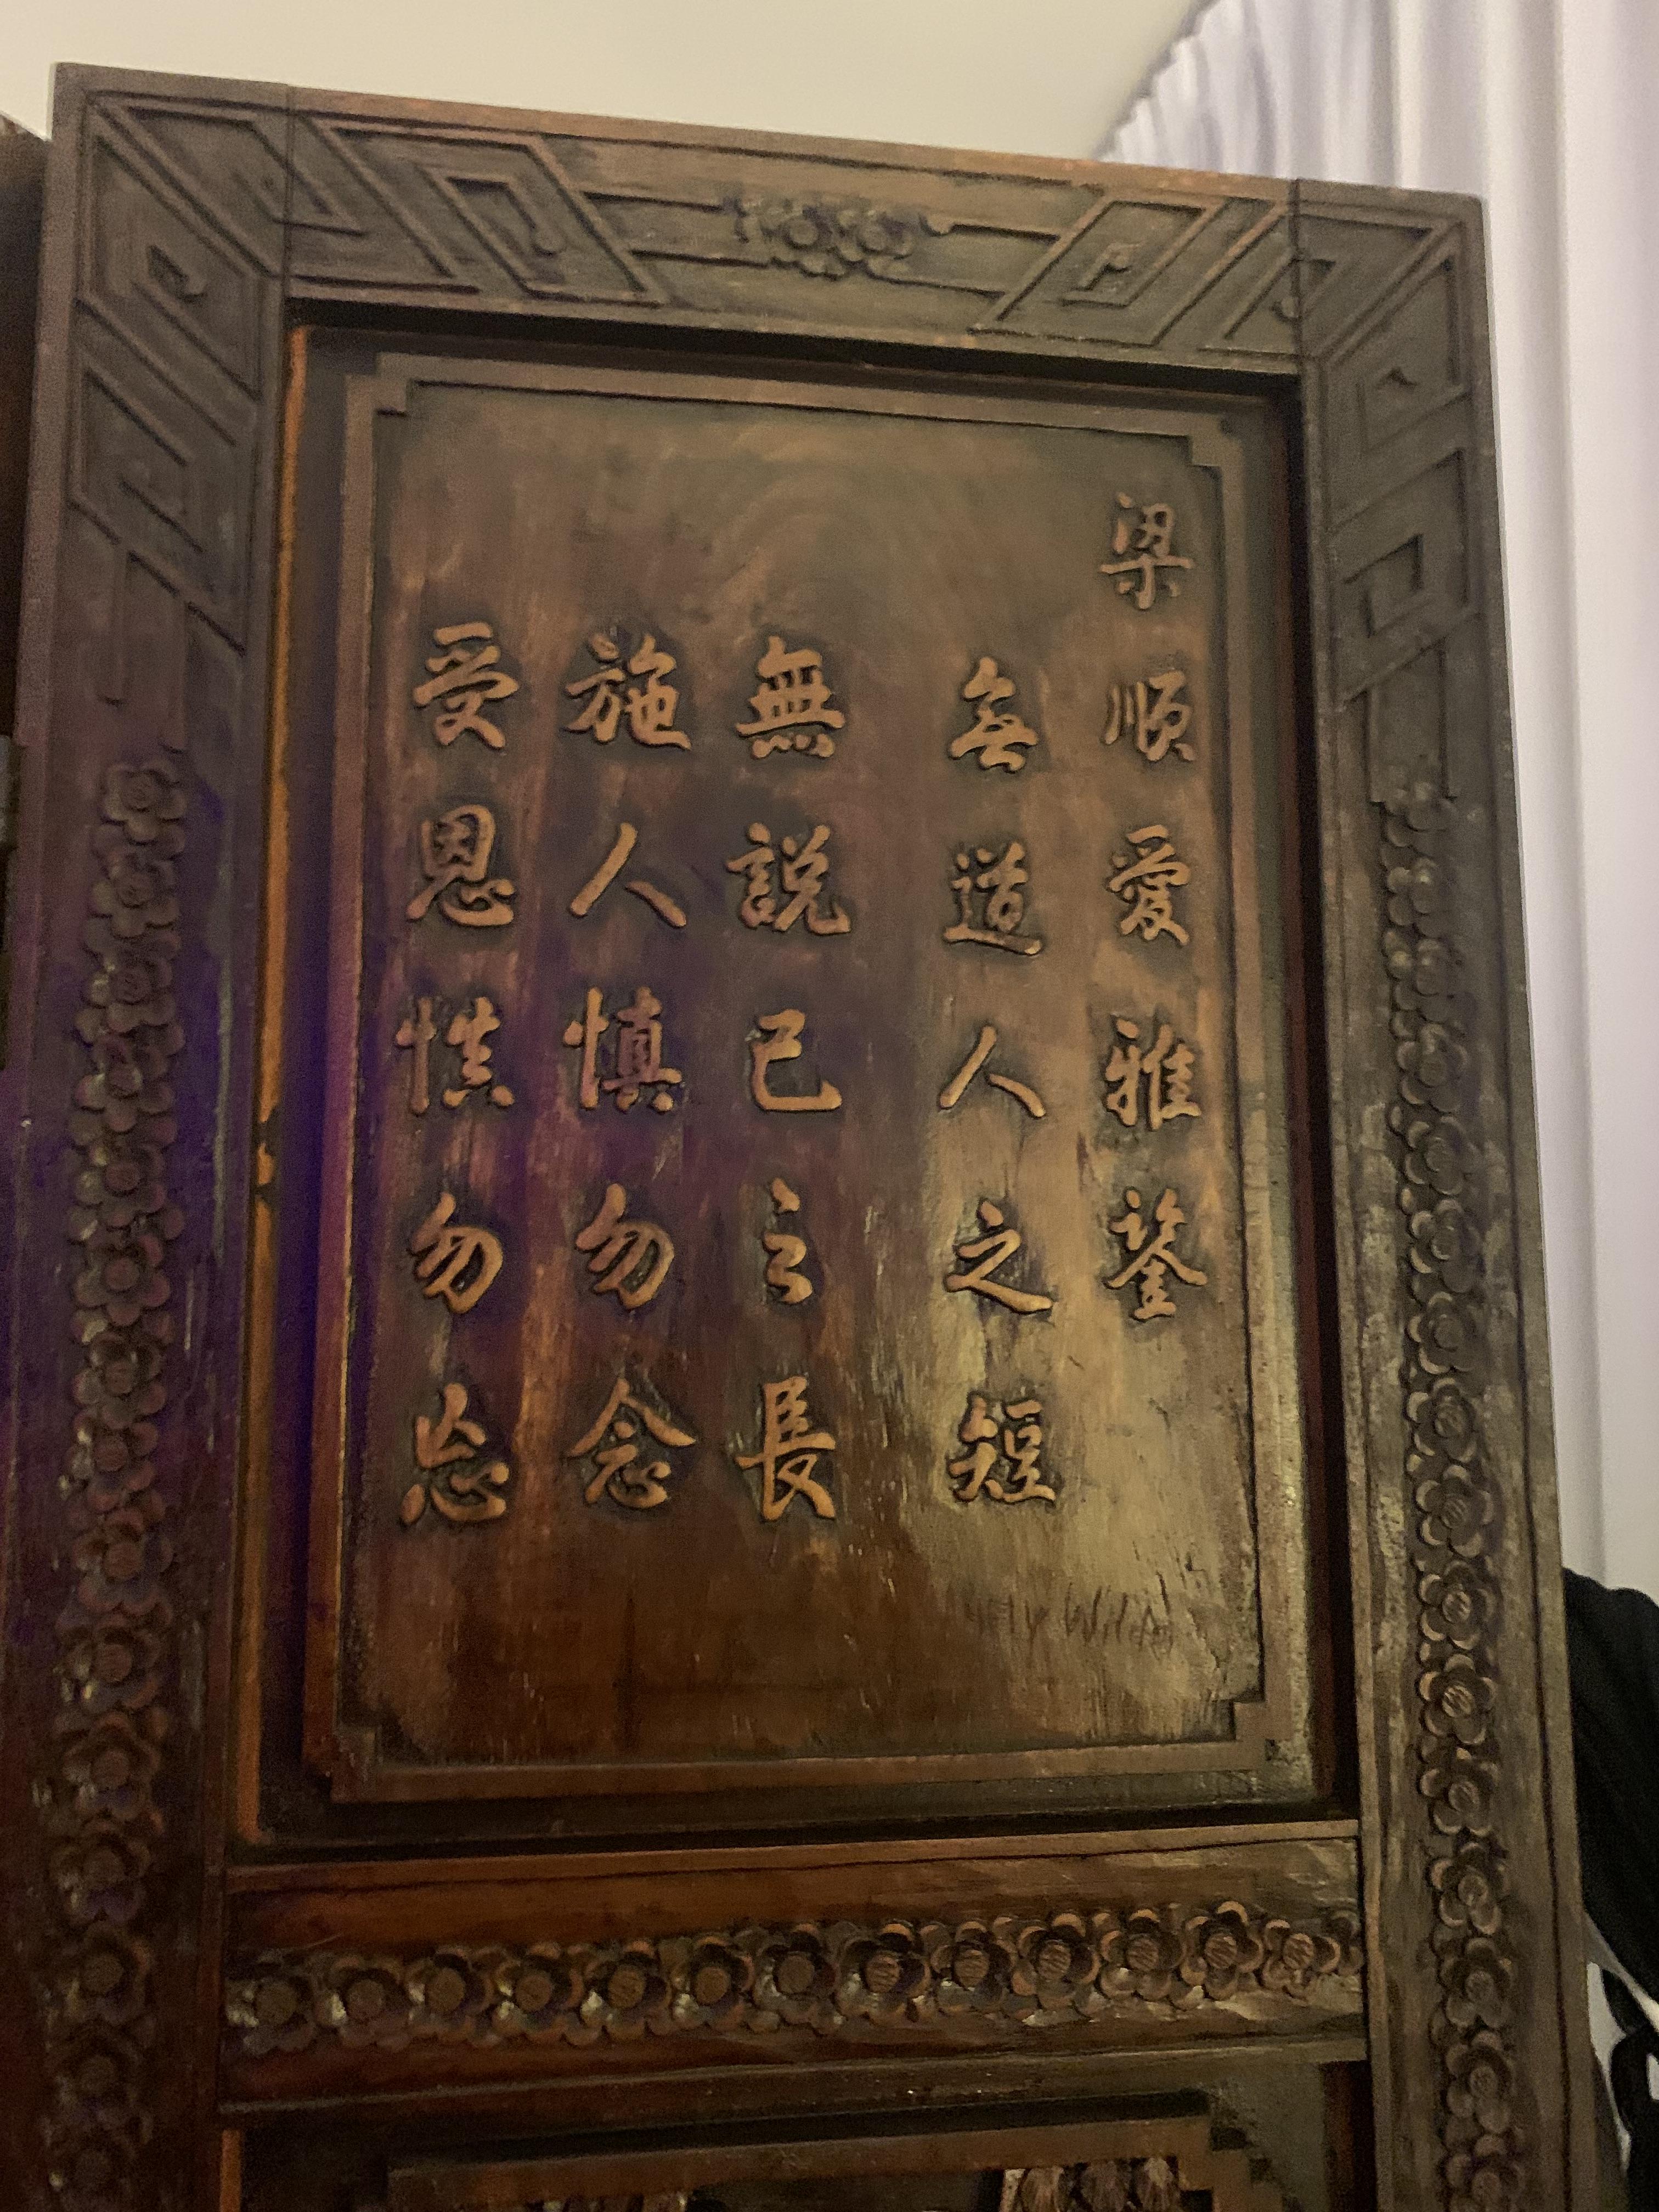 梁順愛雅鉴
無道人之短
無說己之長
施人慎勿念
受恩慎勿忘